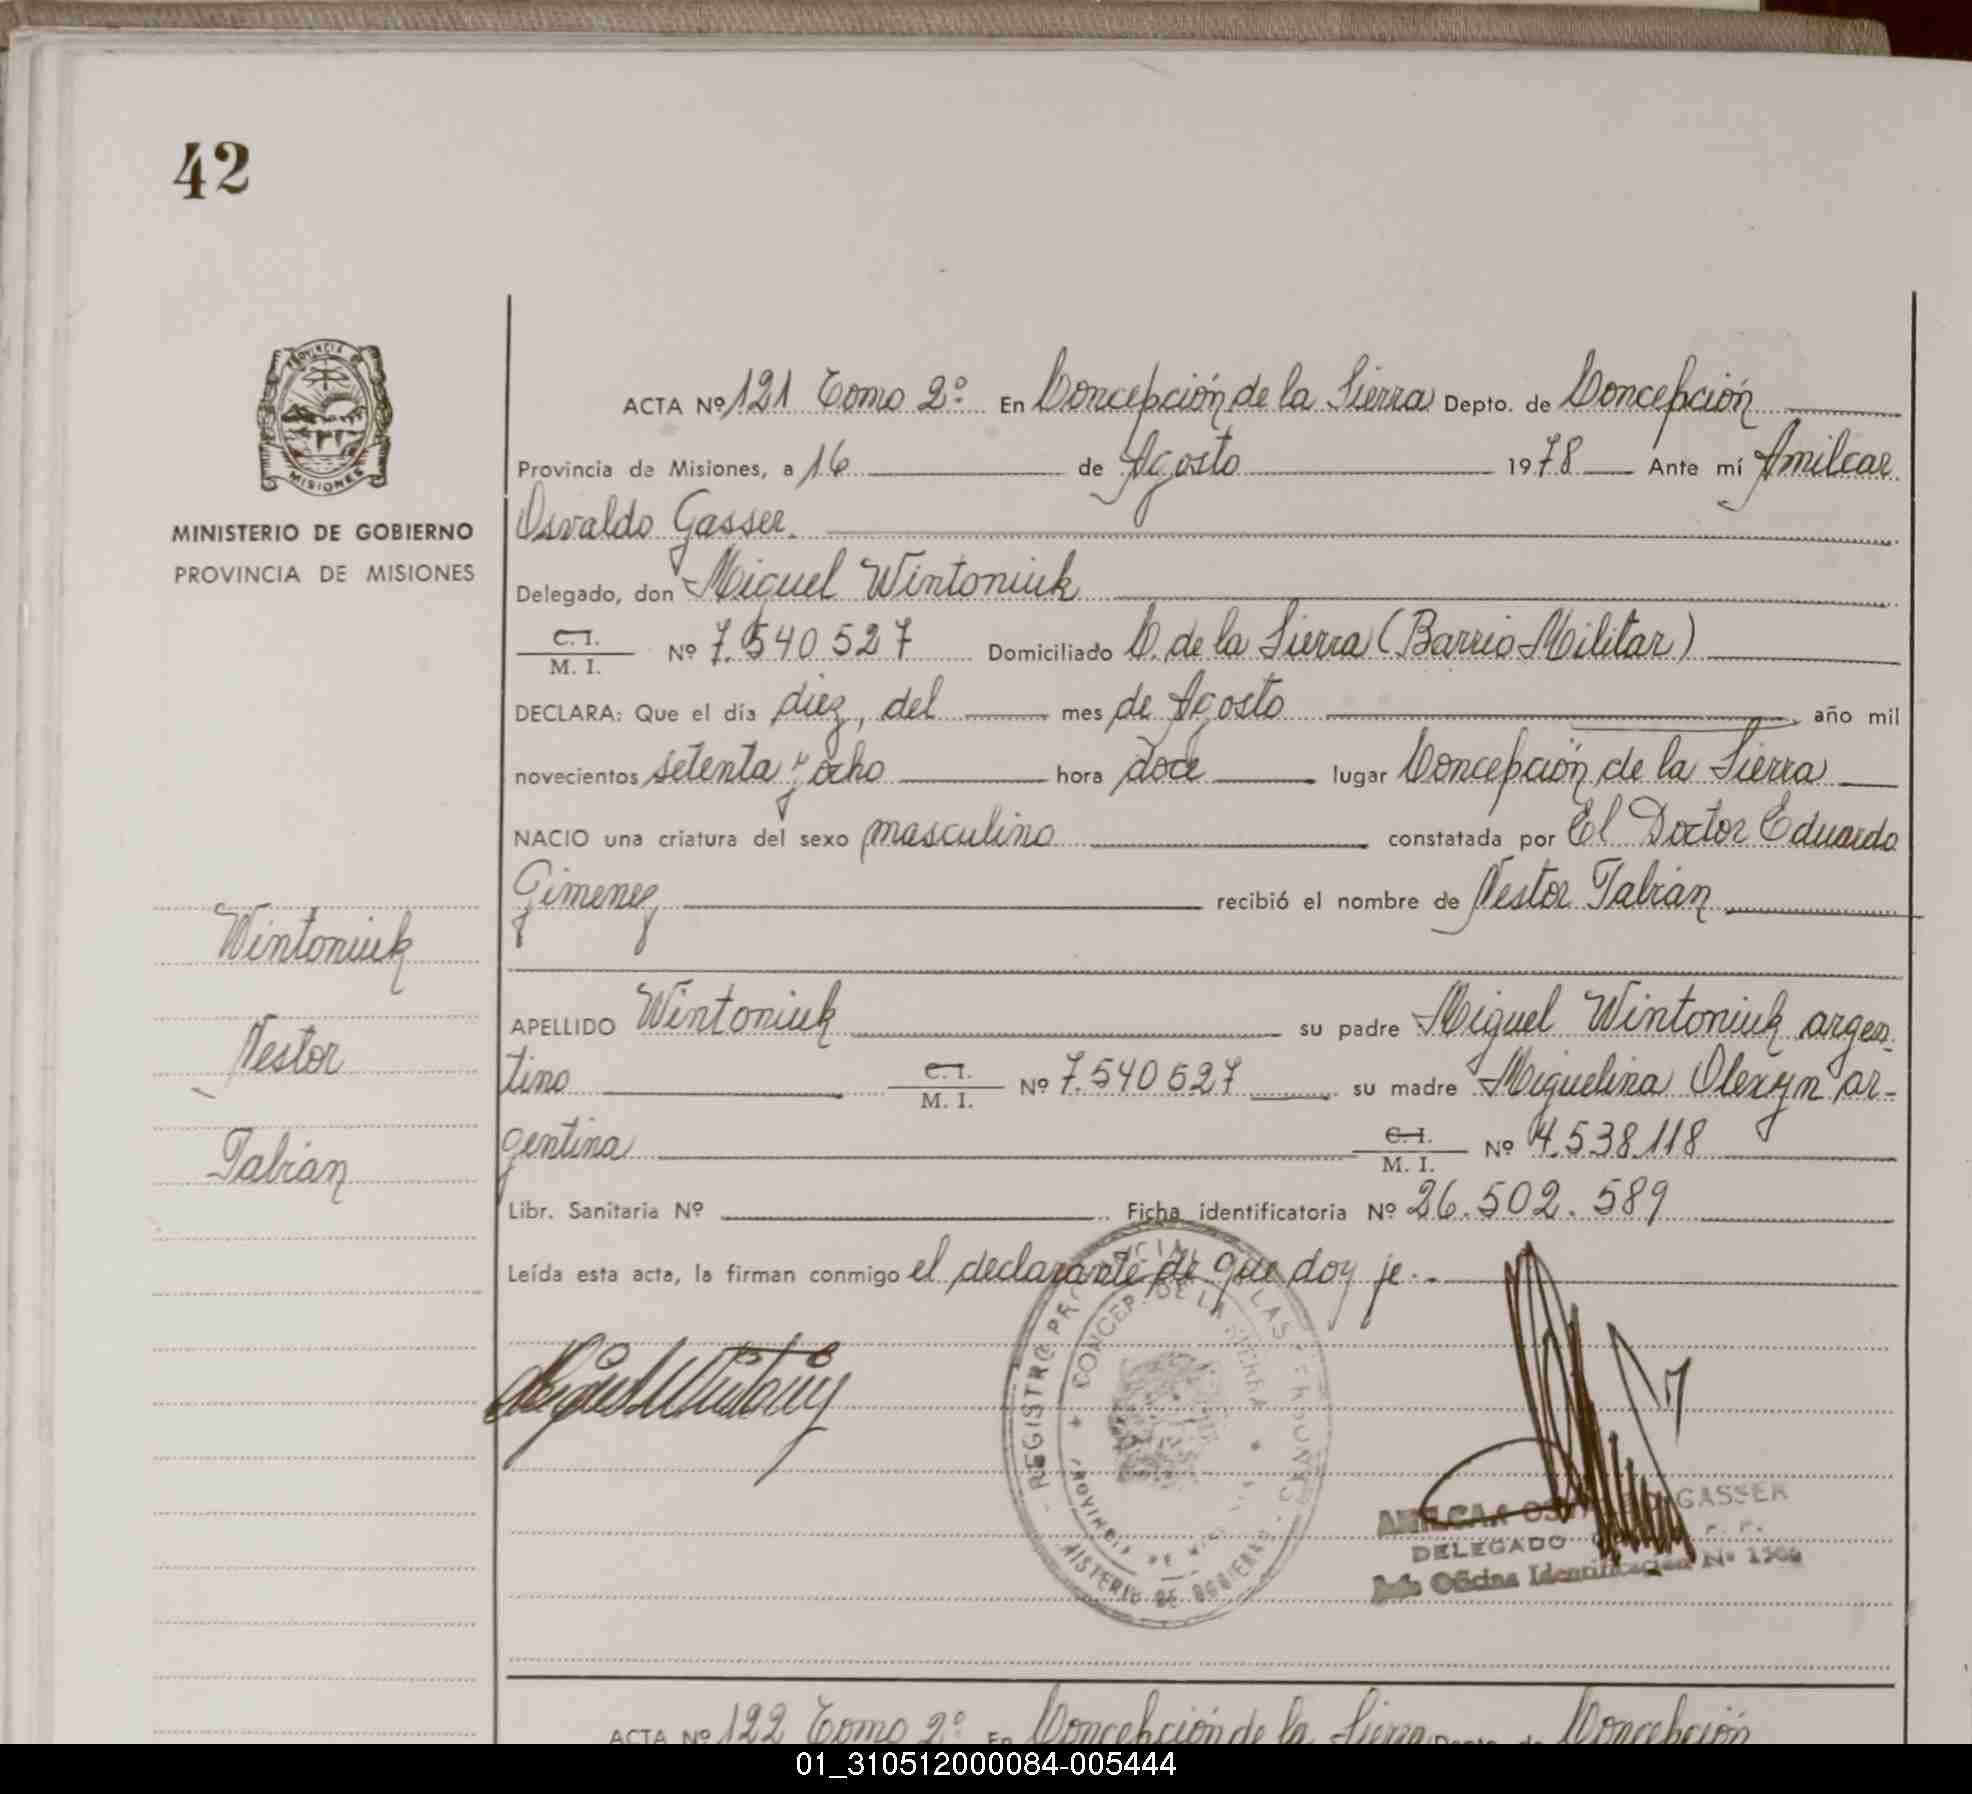 42
PROVINCIA DE
MISIONES
MINISTERIO DE GOBIERNO
PROVINCIA DE MISIONES
Wintoniuk
Nestor
Fabián
ACTA Nº 121 Tomo 2º En Concepción de la Sierra Depto. de Concepción
Provincia de Misiones, a 16 de Agosto 1978 Ante mí Amilcar
Osvaldo Gasser.
Delegado, don Miguel Wintoniuk
C.I.
M. I. Nº 7.540527 Domiciliado C. de la Sierra (Barrio Militar)
DECLARA: Que el día diez, del mes de Agosto, año mil
novecientos setenta y ocho hora doce lugar Concepción de la Sierra
NACIO una criatura del sexo masculino constatada por El Doctor Eduardo
Gimenez recibió el nombre de Nestor Fabián
APELLIDO Wintoniuk su padre Miguel Wintoniuk argen-
tino C.I.
M. I. Nº 7.540527 su madre Miguelina Olexyn ar-
gentina C.I.
M. I. Nº 4.538.118
Libr. Sanitaria Nº Ficha identificatoria Nº 26.502.589
Leída esta acta, la firman conmigo el declarante de que doy fe.-
REGISTRO PROVINCIAL DE LAS PERSONAS - MINISTERIO DE GOBIERNO
CONCEP. DE LA SIERRA
PROVINCIA DE MISIONES
AMILCAR OSVALDO GASSER
DELEGADO
Jefe Oficina Identificación Nº
ACTA Nº 122 Tomo 2º En Concepción de la Sierra Depto. de Concepción
01_310512000084-005444